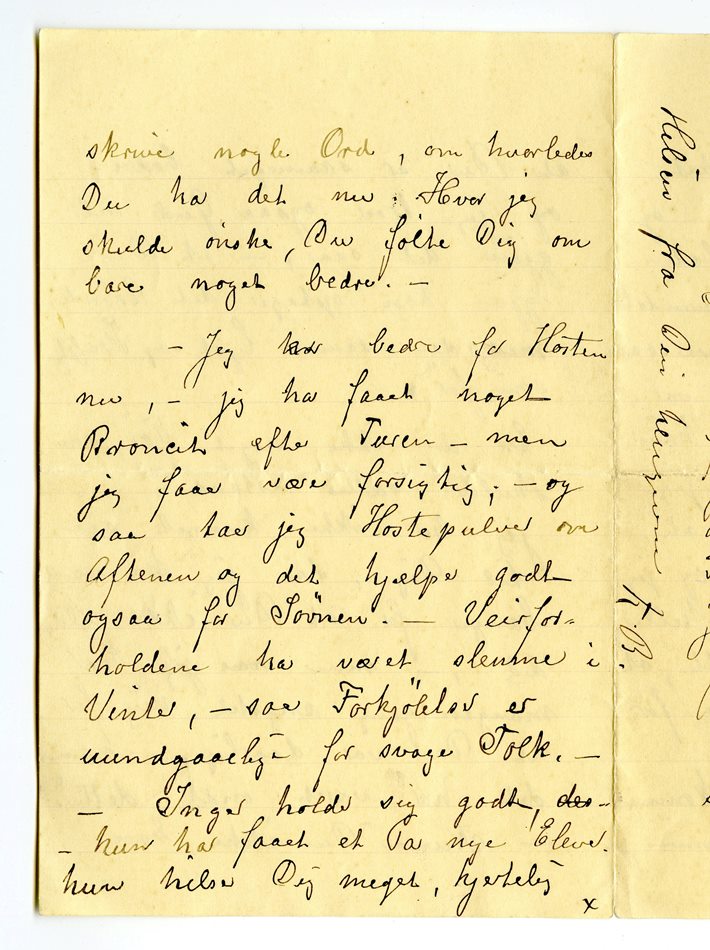 skrive nogle Ord, om hvorledes
Du ha det nu. Hvor jeg
skulde ønske, Du følte Dig om
bare noget bedre. –
– Jeg har bedre for Hosten
nu, – jeg ha faaet noget
Broncit efte Turen – men
jeg faar være forsigtig; – og
saa tar jeg Hostepulver om
Aftenen og det hjælpe godt
ogsaa for Søvnen. – Veirfor-
holdene ha været slemme i
Vinter, – saa Forkjølelser er
uundgaaelige for svage Folk. –
– Inger holde sig godt, des-
– hun har faaet et Pa nye Elever.
hun hilse Dig meget, hjertelig
x
Hilsen fra Din hengivne K. B.